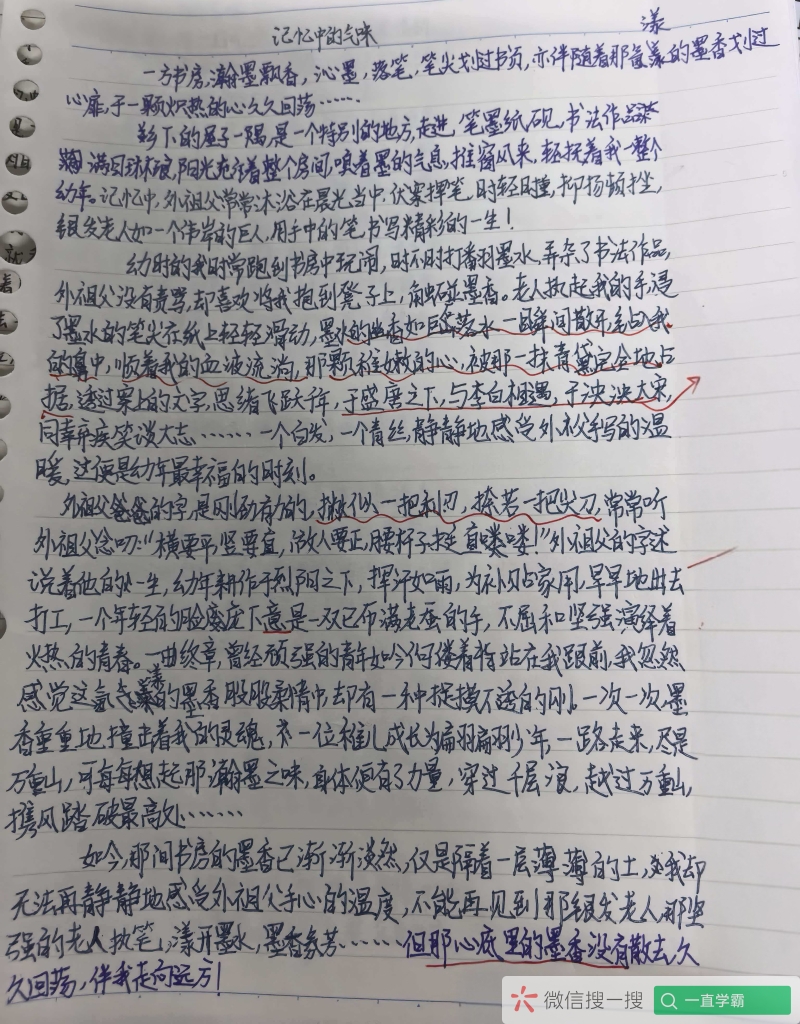 记忆中的气味
漾
一方书房,瀚墨飘香,沁墨,落笔,笔尖划过书页,亦伴随着那氤的墨香划过
心扉,于一颗炽热的心久久回荡……
乡下的屋子一隅,是一个特别的地方,走进,笔墨纸砚,书法作品
满目琳琅,阳光充斥着整个房间,嗅着墨的气息,推窗风来,轻抚着我一整个
幼年。记忆中,外祖父常常沐浴在晨光当中,伏案挥笔,时轻时重,抑扬顿挫,
银发老人如一个伟岸的巨人,用手中的笔书写精彩的一生!
幼时的我时常跑到书房中玩闹,时不时打翻墨水,弄杂了书法作品,
外祖父没有责骂,却喜欢将我抱到凳子上,触碰墨香。老人执起我的手,浸
了墨水的笔尖在纸上轻轻滑动,墨水的幽香如巨石落水一瞬间散开,钻入我
的鼻中,顺着我的血液流淌,那颗稚嫩的心,被那一抹青黛完全地占
据,透过案上的文字,思绪飞跃千年,于盛唐之下,与李白相遇,于泱泱大宋,
同辛弃疾笑谈大志……一个白发,一个青丝,静静地感受外祖父手写的温
暖,这便是幼年最幸福的时刻。
外祖父的字是刚劲有力的,撇似一把利刃,捺若一把尖刀,常常听
外祖父念叨:"横要平,竖要直,做人要正,腰杆子挺直喽喽!"外祖父的字述
说着他的一生,幼年耕作于烈阳之下,挥汗如雨,为补贴家用,早早地出去
打工,一个年轻的脸庞底下竟是一双已布满老茧的手,不屈和坚强演绎着
火热的青春。一曲终章,曾经顽强的青年如今佝偻着背站在我跟前,我忽然
感觉这氤气漾的墨香股股柔情中却有一种捉摸不透的刚。一次一次,墨
香重重地撞击着我的灵魂,一位稚儿成长为翩翩少年,一路走来,尽是
万重山,可每每想起那瀚墨之味,身体便有了力量,穿过千层浪,越过万重山,
携风踏破最高处……
如今,那间书房的墨香已渐渐淡然,仅是隔着一层薄薄的土,我却
无法再静静地感受外祖父手心的温度,不能再见到那银发老人,那坚
强的老人执笔,漾开墨水,墨香芬芳……但那心底里的墨香没有散去,久
久回荡,伴我走向远方!
微信搜一搜
一直学霸